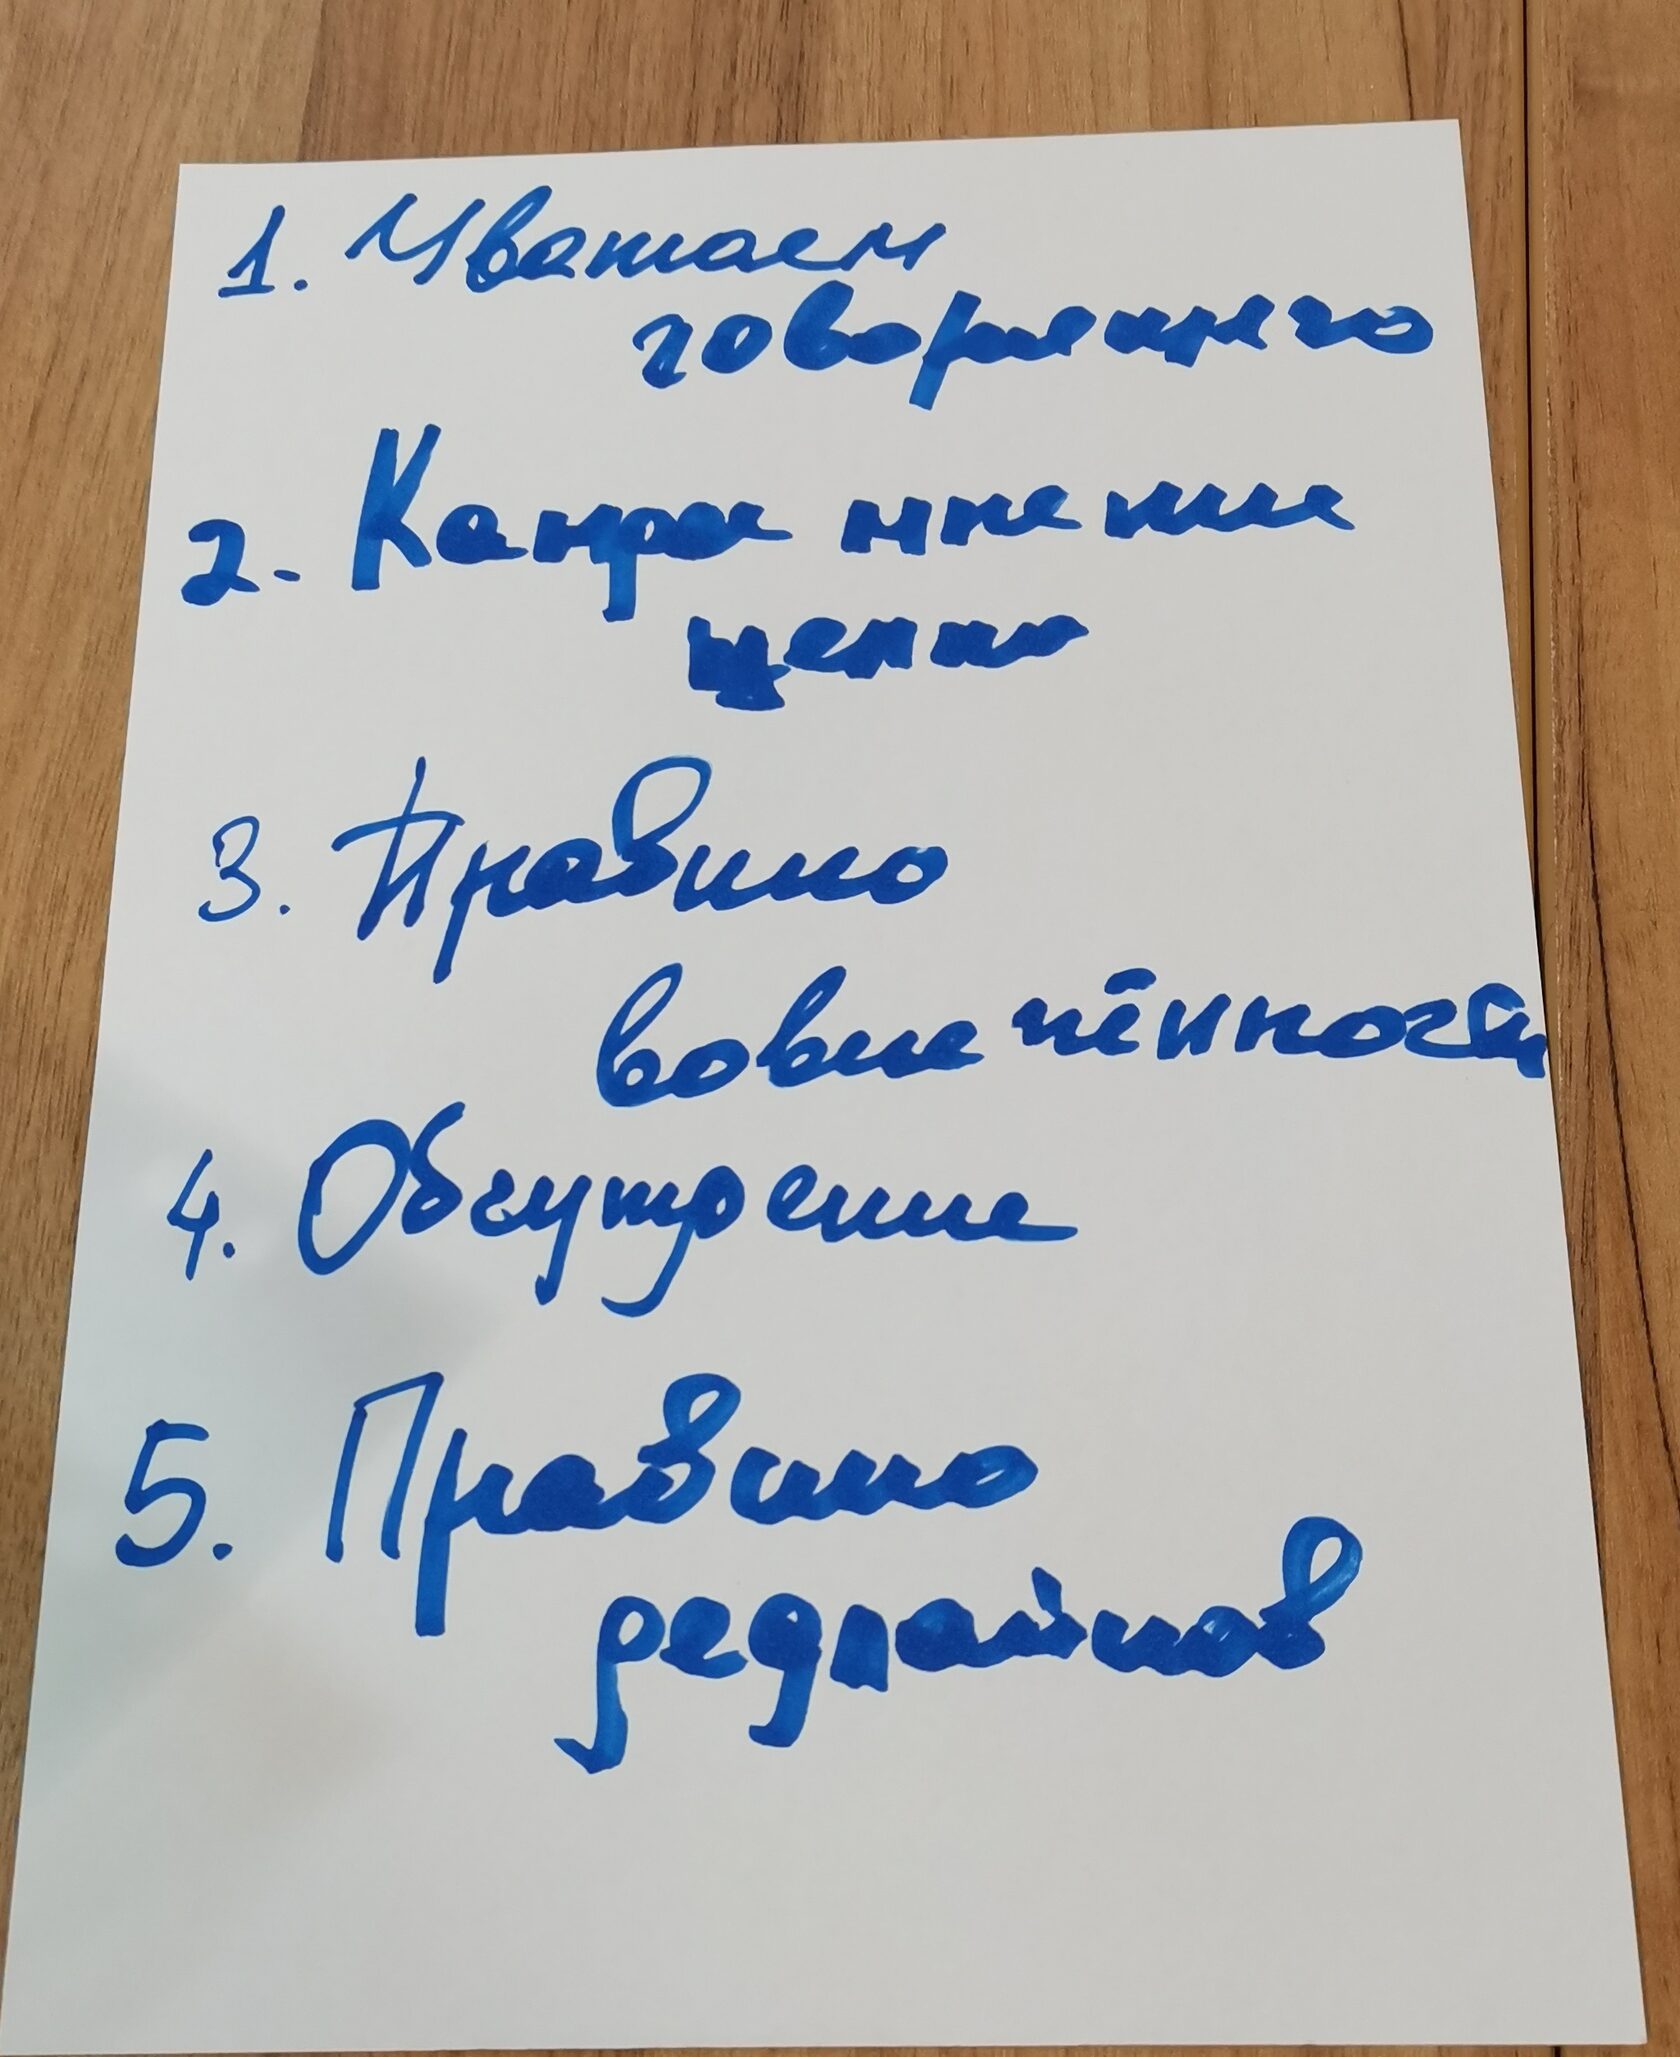 1. Уважаем
говорящего
2. Каждое мнение
ценно
3. Правило
вовлечённости
4. Обсуждение
5. Правило
дедлайнов